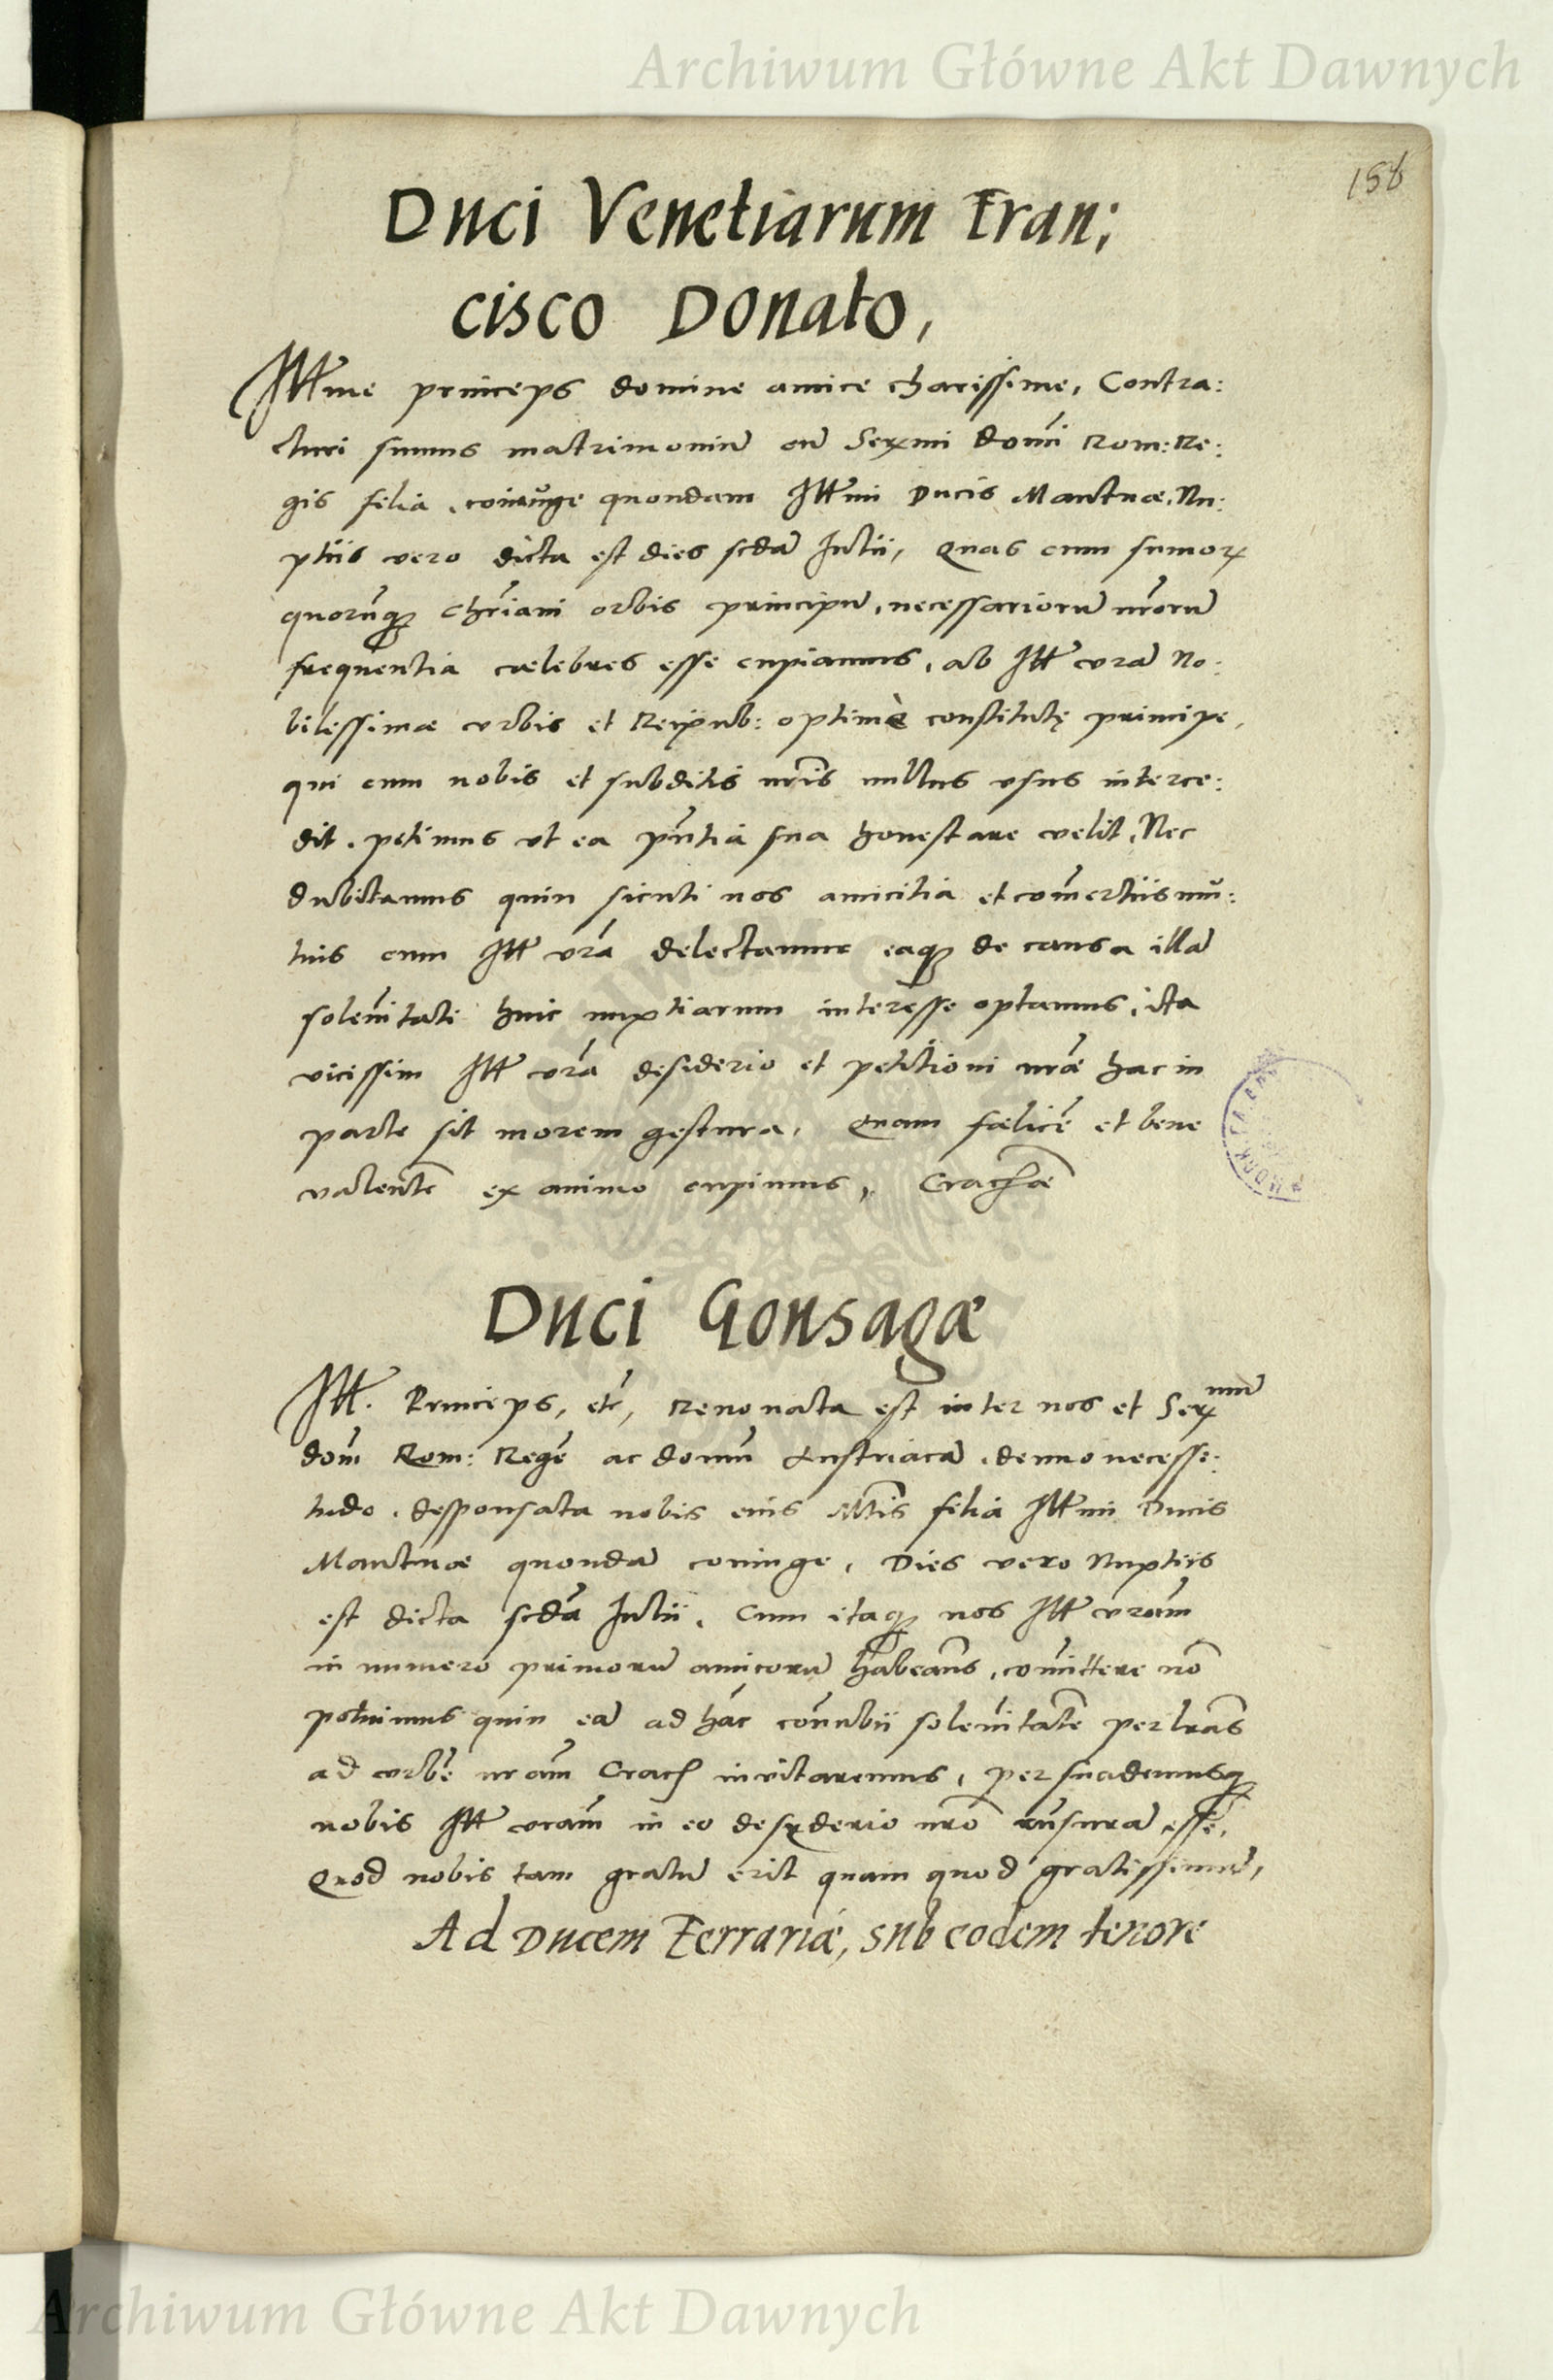 Archiwum Główne Akt Dawnych
158
Duci Venetiarum Fran:
cisco Donato,
Illme princeps domine amice charissime, Contra:
cturi sumus matrimoniũ cũ Serꝫmi domĩ Rom: Re:
gis filia, coniuge quondam Illmi Ducis Mantuæ. Nu:
ptiis vero dicta est dies scdã Julii, Quas cum sumorꝝ
quorũqꝫ Chr̃iani orbis principũ, necessariorũ nr̃orũ
frequentia cælebres esse cupiamus, ab Ill vrã No:
bilissimæ urbis et Reipub: optimè constitutę principe,
qui cum nobis et subditis nr̃is nullus usus interce:
dit. petimus ut ea pñtia sua honestare velit. Nec
dubitamus quin sicuti nos amicitia et com̃ertiis mũ:
tuis cum Ill vrã delectamur eaqꝫ de causa illã
solem̃itati huic nuptiarum interesse optamus, ita
vicissim Ill vrã desiderio et petitioni nræ̃ hac in
parte sit morem gestura, Quam fœlicẽ et bene
valentẽ ex animo cupimus, Cracħæ
Duci Gonsagæ
Ill. Princeps, etc̃, Renovata est inter nos et Serꝫmũ
dom̃ Rom: Regẽ ac domũ Austriacã, denuo necessi:
tudo, desponsata nobis eius Mtĩs filia Illmi Ducis
Mantuæ quondã coniuge, Dies vero Nuptiis
est dicta scdã Julii. Cum itaqꝫ nos Ill vram̃
in numero primorũ amicorũ habeam̃s, com̃ittere nõ
potuimus quin eã ad hãc con̄ubii solem̃itatẽ per lrãs
ad urbẽ nram̃ Cracħ invitaremus, persuademusqꝫ
nobis Ill vram̃ in eo desyderio nrõ esse,
Quod nobis tam gratũ erit quam quod gratissimũ,
Ad Ducem Ferrariæ, sub eodem tenore
Archiwum Główne Akt Dawnych